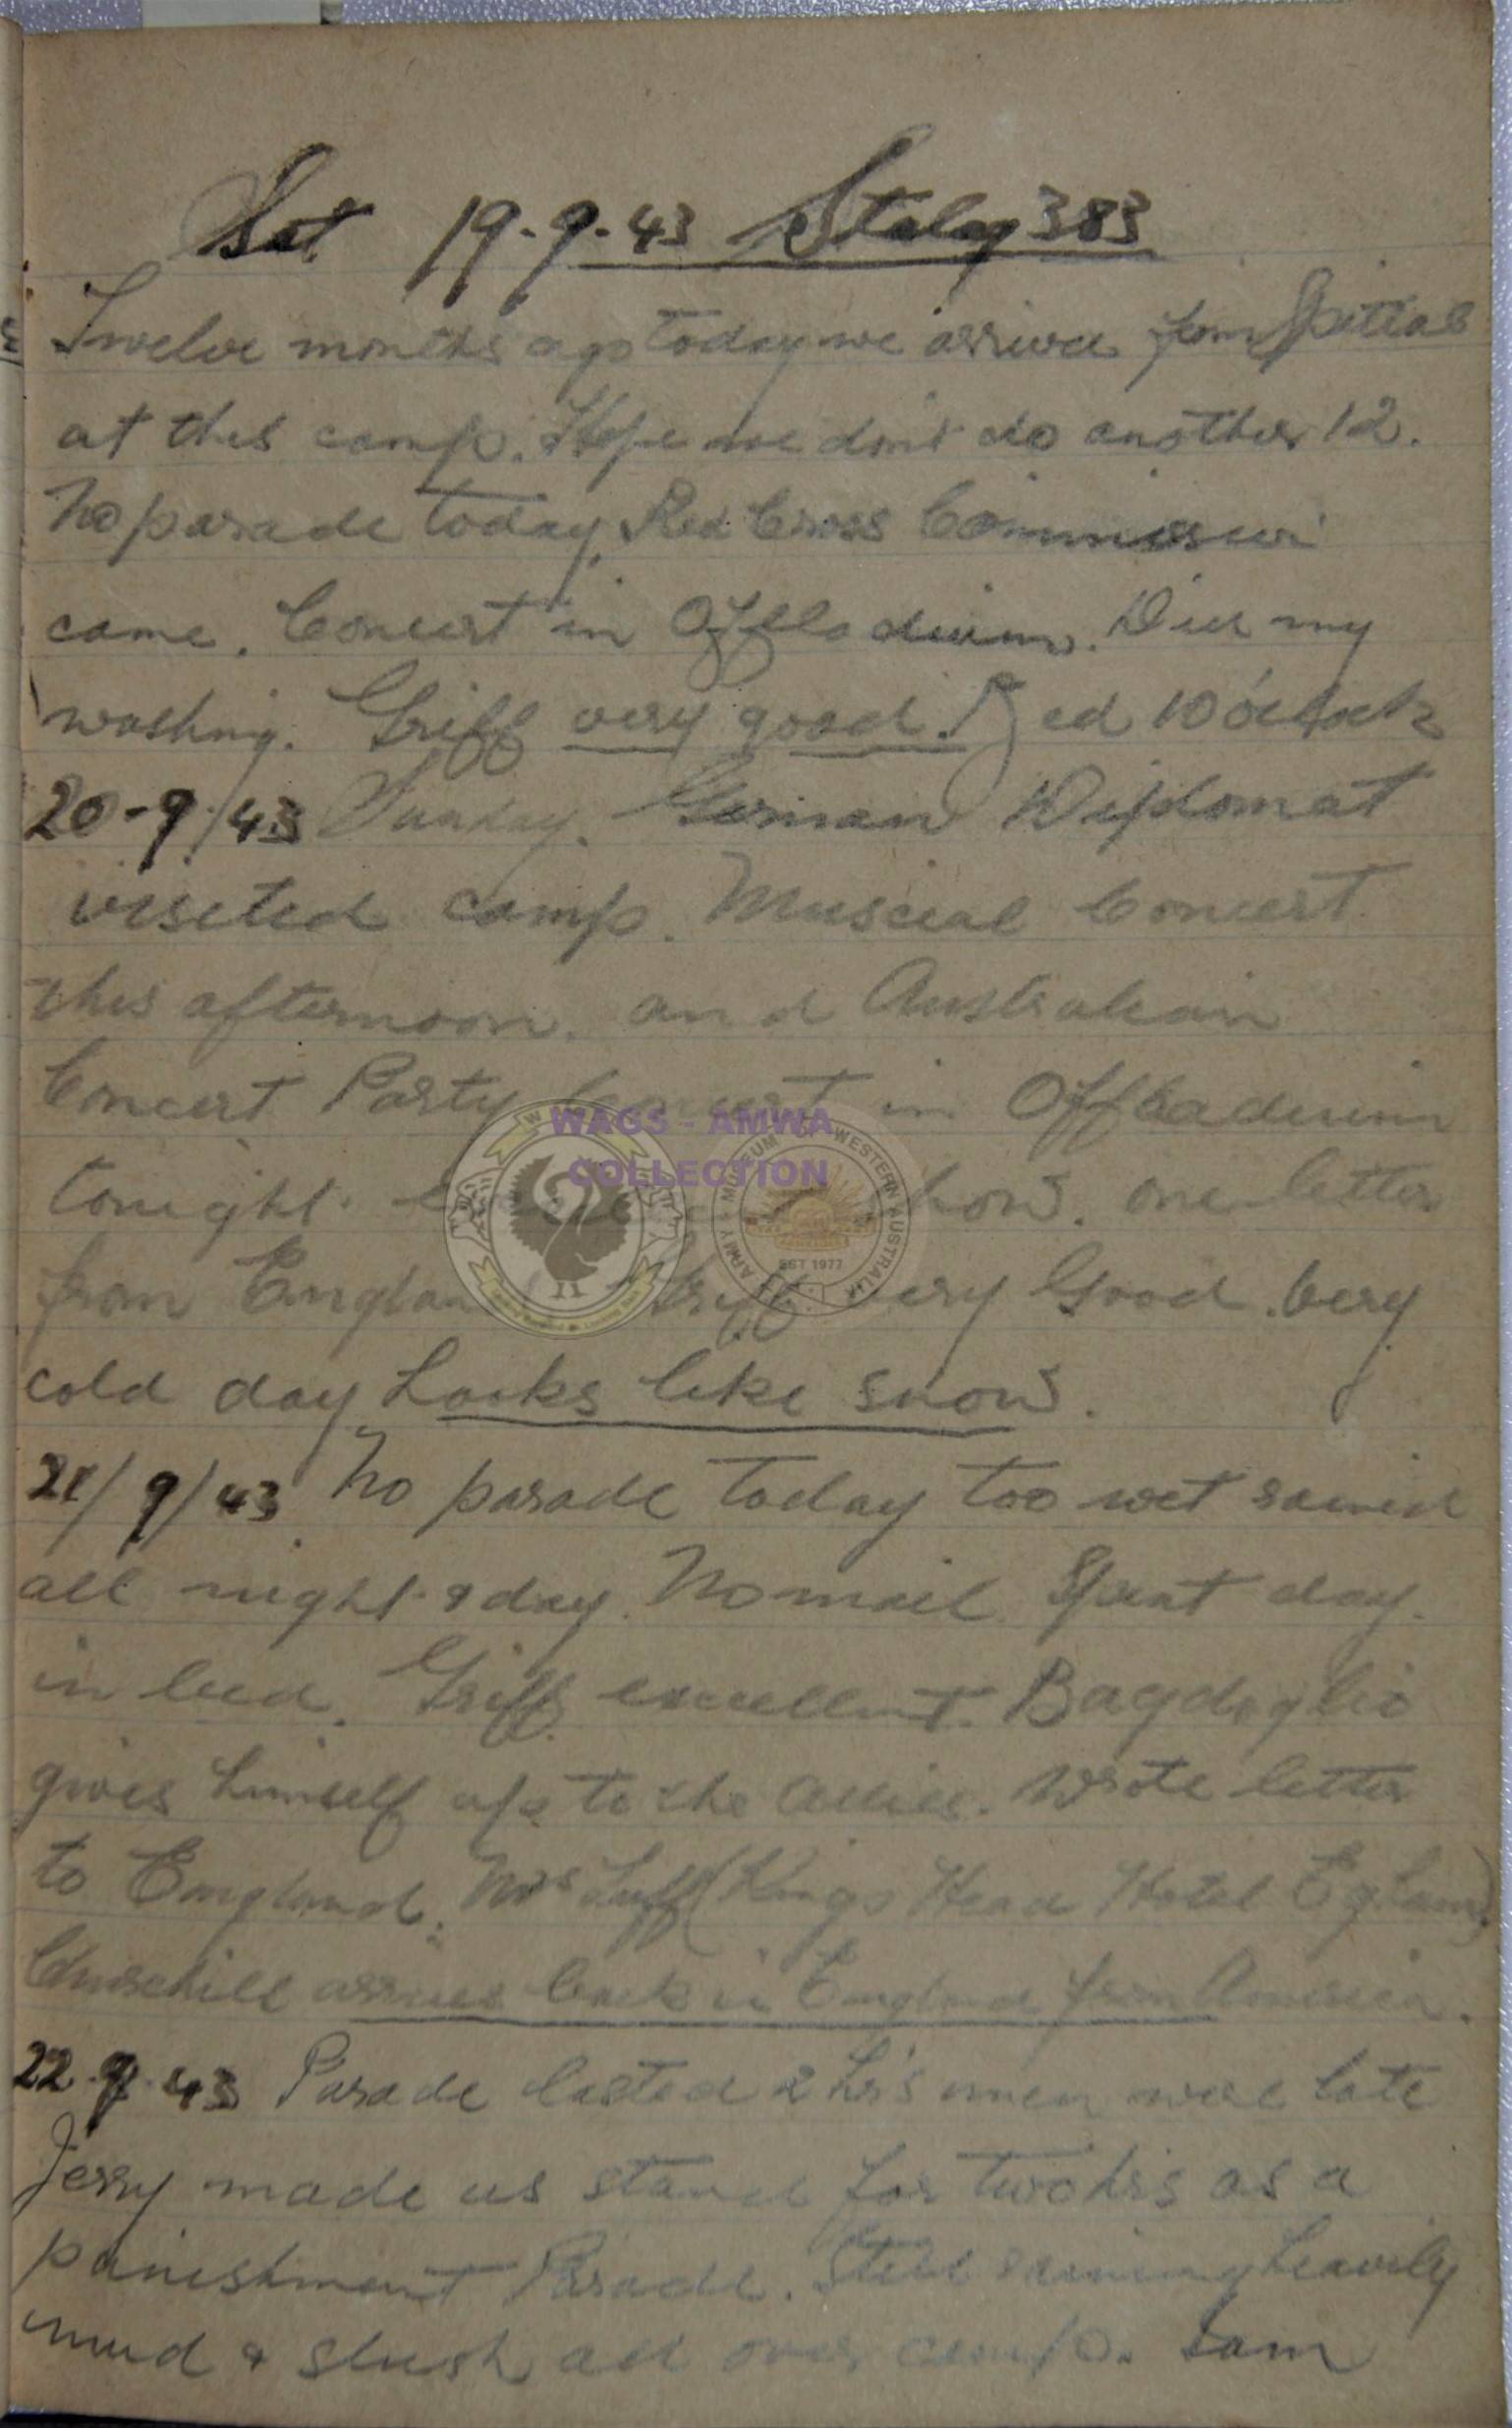 Sat 19-9-43 Stalag 383
Twelve months ago today we arrived from Spittal
at this camp. Hope we don't do another 12.
No parade today, Red Cross
came. Concert in Offladium. Did my
washing. Griff very good. Bed 10 o'clock
20-9/43 Sunday. German Diplomat
viseted camp. Muscial Concert
this afternoon. and Australian
Concert Party Concert in Offladium
tonight. show. one letter
from England Griff very Good. Very
cold day Looks like snow.
21/9/43 No parade today too wet rained
all night & day. No mail Spent day
in bed. Griff excellent. Bagdoglio
gives himself up to the allies. Wrote letter
to England. Mrs Luff (Kings Head Hotel Egham)
Churchill arrives back in England from America.
22-9-43 Parade lasted 2 hrs men were late
Jerry made us stand for two hrs as a
punishment Parade. Still raining heavily
mud & slush all over camp. Sam
WAGS - AMWA
COLLECTION
ARMY MUSEUM OF WESTERN AUSTRALIA
EST 1977